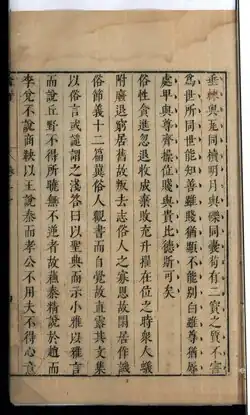 垂棘與瓦同櫝明月與礫同囊苟有二寶之質不害
爲世所同世能知善雖賤猶顯不能別白雖尊猶辱
處卑與尊齊操位賤與貴比德斯可矣
俗性貪進忽退收成棄敗充升擢在位之時衆人蟻
附廢退窮居舊故叛去志俗人之寡恩故閒居作譏
俗節義十二篇冀俗人觀書而自覺故直露其文集
以俗言或譴謂之淺答曰以聖典而示小雅以雅言
而說丘野不得所曉無不逆者故蘇秦精說於趙而
李兌不說商鞅以王說秦而孝公不用夫不得心意